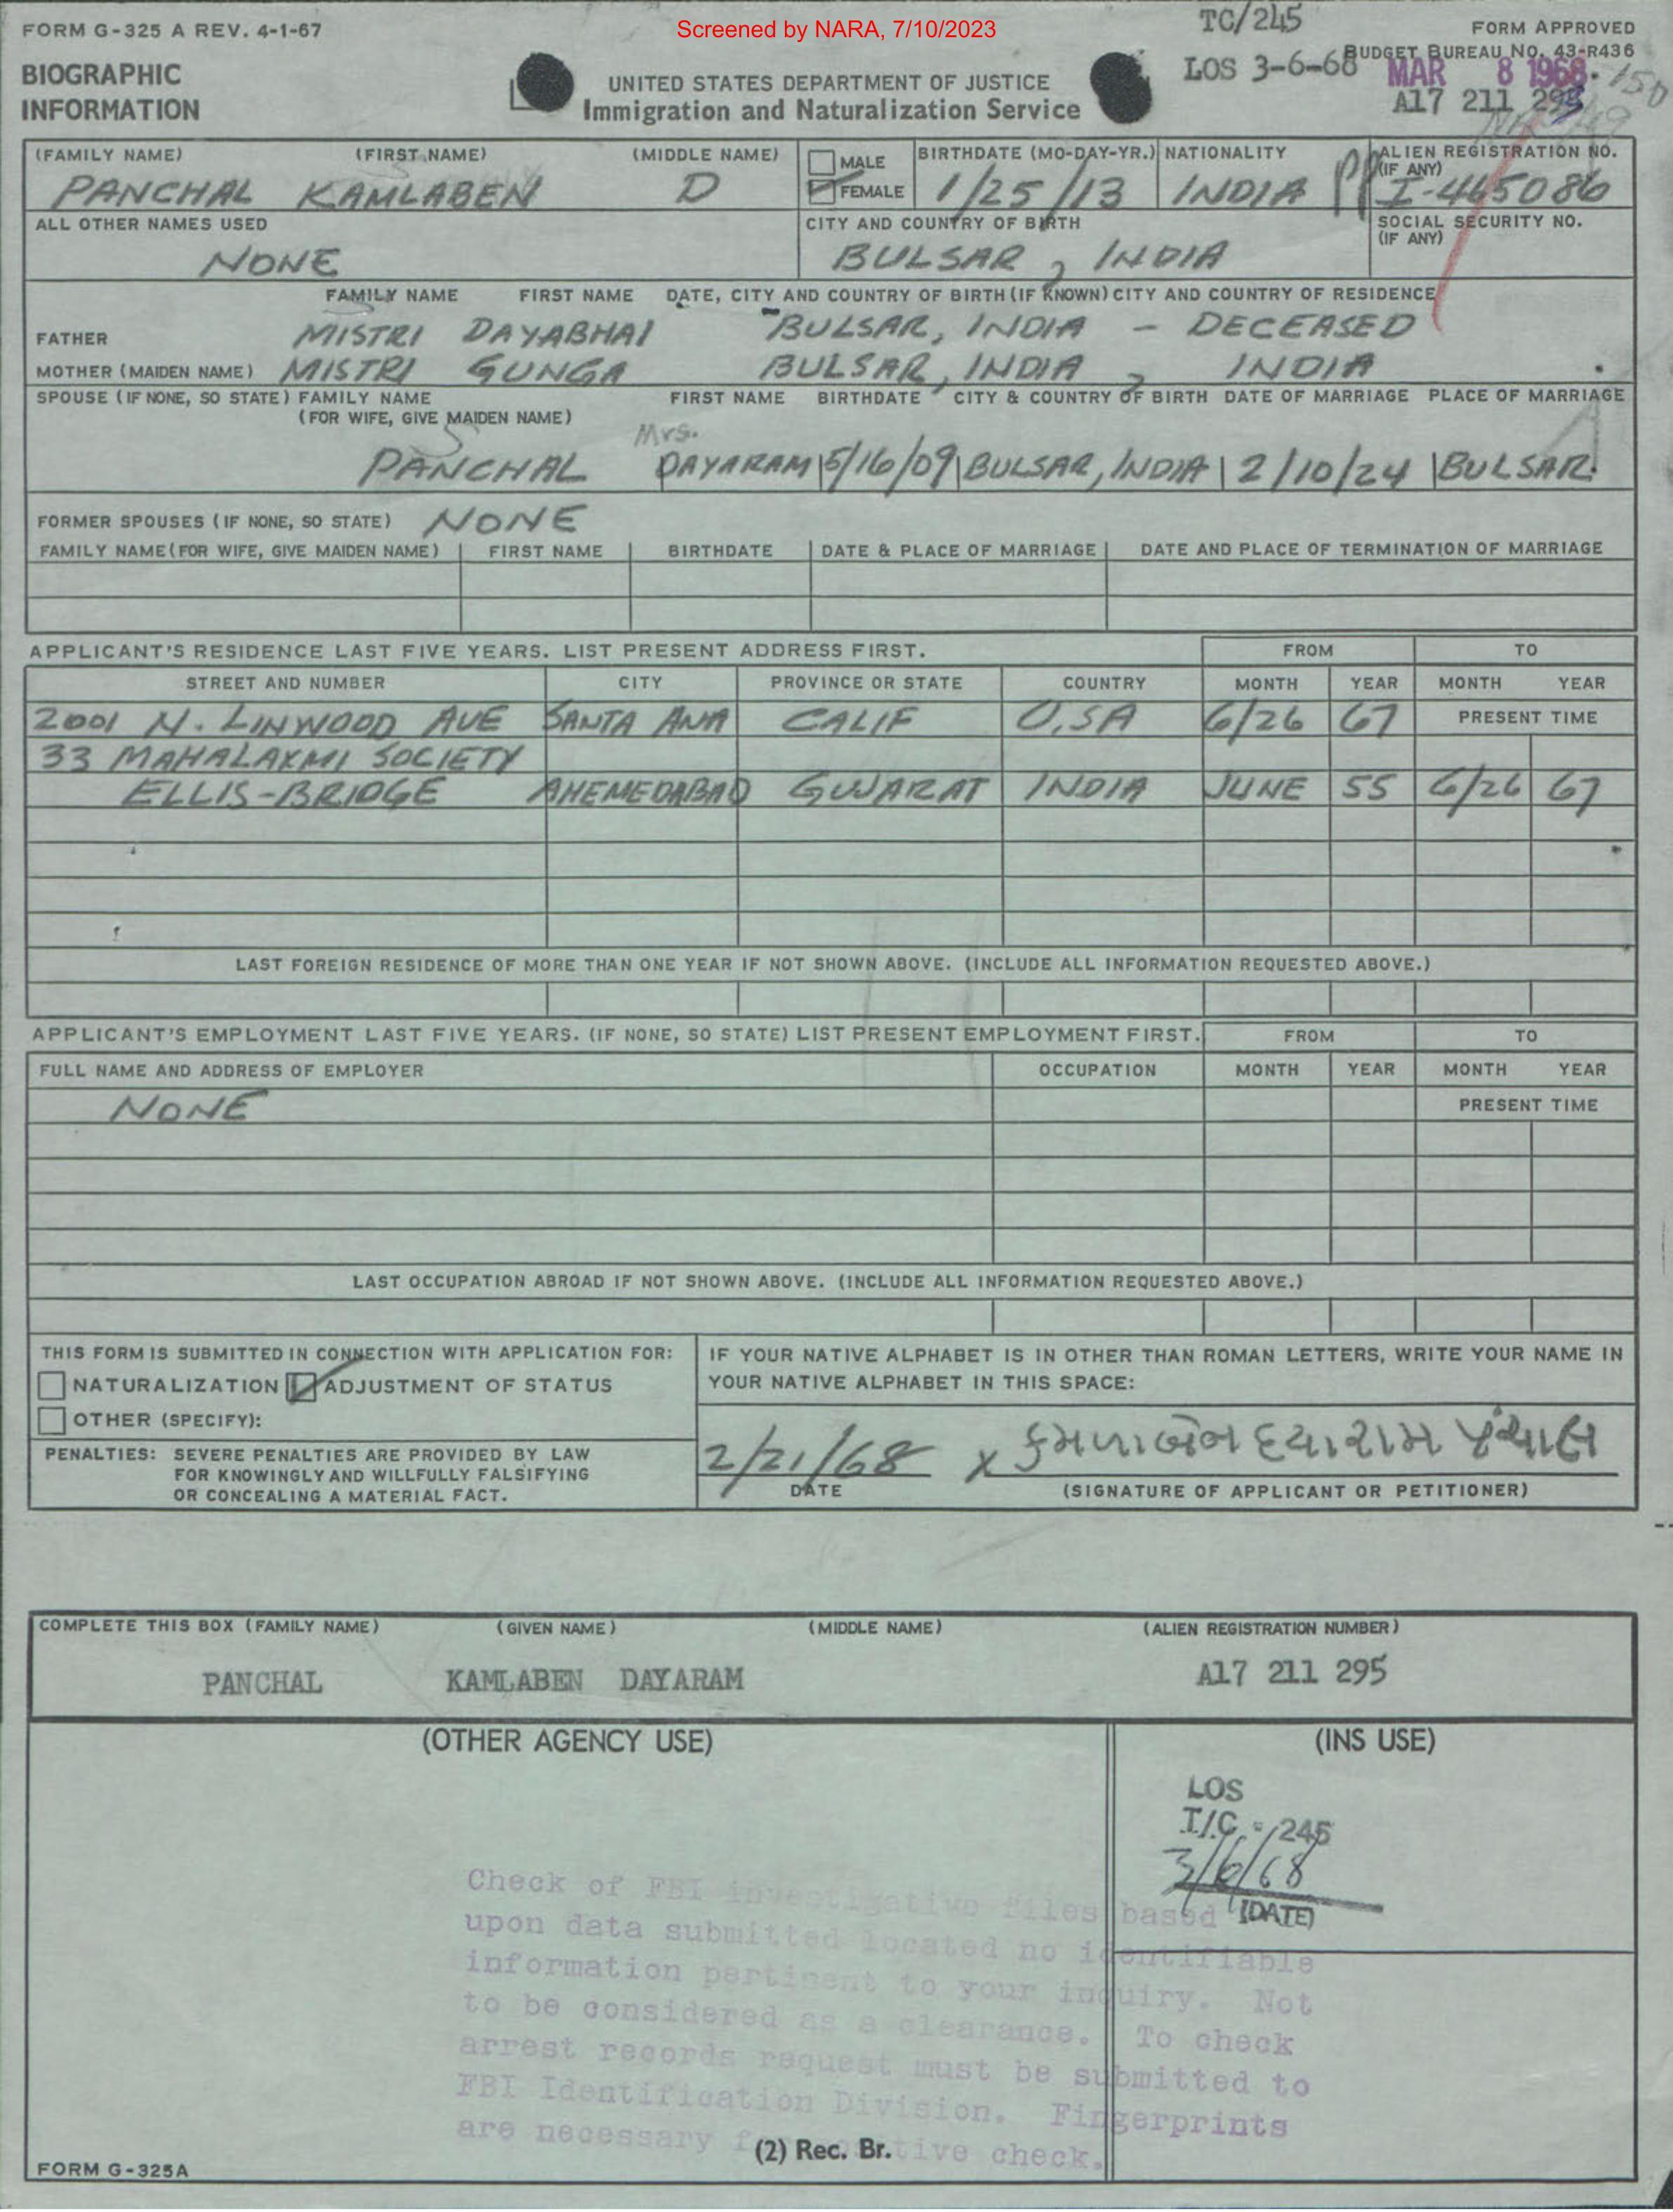 Screened by NARA, 7/10/2023
FORM G-325 A REV. 4-1-67
TC/245
FORM APPROVED
BUDGET BUREAU NO. 43-R436
BIOGRAPHIC
INFORMATION
UNITED STATES DEPARTMENT OF JUSTICE
Immigration and Naturalization Service
LOS 3-6-68
MAR 8 1968
150
A17 211 295
(FAMILY NAME) (FIRST NAME) (MIDDLE NAME)
PANCHAL KAMLABEN D
MALE
FEMALE
BIRTHDATE (MO-DAY-YR.)
1/25/13
NATIONALITY
INDIA
ALIEN REGISTRATION NO.
(IF ANY)
I-445086
ALL OTHER NAMES USED
NONE
CITY AND COUNTRY OF BIRTH
BULSAR, INDIA
SOCIAL SECURITY NO.
(IF ANY)
FAMILY NAME FIRST NAME DATE, CITY AND COUNTRY OF BIRTH (IF KNOWN) CITY AND COUNTRY OF RESIDENCE
FATHER MISTRI DAYABHAI BULSAR, INDIA - DECEASED
MOTHER (MAIDEN NAME) MISTRI GUNGA BULSAR, INDIA, INDIA
SPOUSE (IF NONE, SO STATE) FAMILY NAME FIRST NAME BIRTHDATE CITY & COUNTRY OF BIRTH DATE OF MARRIAGE PLACE OF MARRIAGE
(FOR WIFE, GIVE MAIDEN NAME)
Mrs.
PANCHAL DAYARAM 5/16/09 BULSAR, INDIA 2/10/24 BULSAR.
FORMER SPOUSES (IF NONE, SO STATE) NONE
FAMILY NAME (FOR WIFE, GIVE MAIDEN NAME) FIRST NAME BIRTHDATE DATE & PLACE OF MARRIAGE DATE AND PLACE OF TERMINATION OF MARRIAGE
APPLICANT'S RESIDENCE LAST FIVE YEARS. LIST PRESENT ADDRESS FIRST. FROM TO
STREET AND NUMBER CITY PROVINCE OR STATE COUNTRY MONTH YEAR MONTH YEAR
2001 N. LINWOOD AVE SANTA ANA CALIF U.SA 6/26 67 PRESENT TIME
33 MAHALAXMI SOCIETY
ELLIS-BRIDGE AHEMEDABAD GUJARAT INDIA JUNE 55 6/26 67
LAST FOREIGN RESIDENCE OF MORE THAN ONE YEAR IF NOT SHOWN ABOVE. (INCLUDE ALL INFORMATION REQUESTED ABOVE.)
APPLICANT'S EMPLOYMENT LAST FIVE YEARS. (IF NONE, SO STATE) LIST PRESENT EMPLOYMENT FIRST. FROM TO
FULL NAME AND ADDRESS OF EMPLOYER OCCUPATION MONTH YEAR MONTH YEAR
NONE PRESENT TIME
LAST OCCUPATION ABROAD IF NOT SHOWN ABOVE. (INCLUDE ALL INFORMATION REQUESTED ABOVE.)
THIS FORM IS SUBMITTED IN CONNECTION WITH APPLICATION FOR:
NATURALIZATION ADJUSTMENT OF STATUS
OTHER (SPECIFY):
PENALTIES: SEVERE PENALTIES ARE PROVIDED BY LAW
FOR KNOWINGLY AND WILLFULLY FALSIFYING
OR CONCEALING A MATERIAL FACT.
IF YOUR NATIVE ALPHABET IS IN OTHER THAN ROMAN LETTERS, WRITE YOUR NAME IN
YOUR NATIVE ALPHABET IN THIS SPACE:
2/21/68 x કમળાબેન દયારામ પંચાલ
DATE (SIGNATURE OF APPLICANT OR PETITIONER)
COMPLETE THIS BOX (FAMILY NAME) (GIVEN NAME) (MIDDLE NAME) (ALIEN REGISTRATION NUMBER)
PANCHAL KAMLABEN DAYARAM A17 211 295
(OTHER AGENCY USE) (INS USE)
LOS
I/C - /245
3/6/68
(DATE)
Check of FBI investigative files based
upon data submitted located no identifiable
information pertinent to your inquiry. Not
to be considered as a clearance. To check
arrest records request must be submitted to
FBI Identification Division. Fingerprints
are necessary check.
(2) Rec. Br.
FORM G-325A